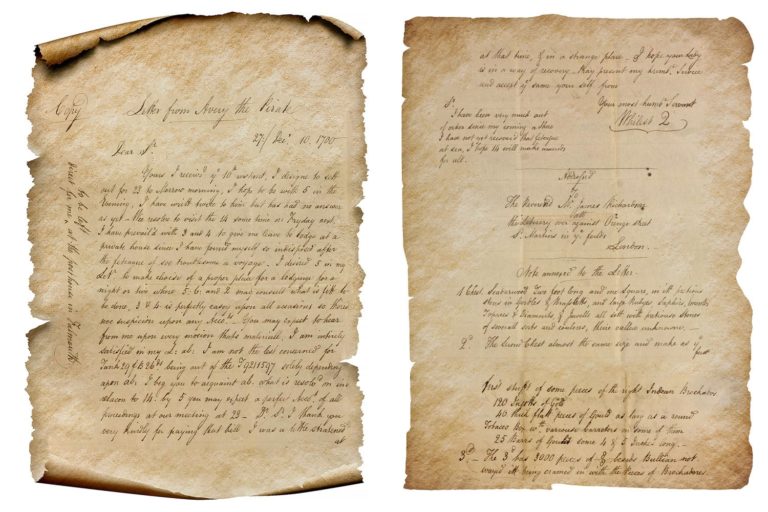 Copy
Letter from Avery the Pirate
27/ Decr. 10. 1700
Dear Sr.
Yours I received ye 10th instant, I designe to sett
out for 23 to Morrow morning, I hope to be with 5 in the
Evening, I have writt twice to him but has had no answer
as yet - Ive resolve to visit the 14 some time or Fryday next.
I have prevail'd with 3 and 4 to give me leave to lodge at a
private house since I have found myself so indispos'd after
the fateigue of soe troublesome a voyage. I desired 5 in my
to make choise of a proper place for a lodgeing for a
night or two where 5. 6. and 2 may consult what is fitt to
be done, 3 & 4 is perfectly easey upon all occasions so theres
noe suspicion upon any Acct. - You may expect to hear
from me upon every motion thats materiall. I am intirely
satisfied in my I am not the lest concerned for
Tank 29 f B 26 being out of the T9211597 solely depending
upon I beg you to acquaint what is resolv'd on in
to 14. by 5 you may expect a perfect Acct. of all
proceedings at our meeting at 23 - Dr. Sr. I thank you
very kindly for paying that bill I was a little straitened
at
to be left
direct for me at the posthouse in Falmouth
at that time, & in a strange place - I hope your Lady
is in a way of recovery - May present my humb. Service
and accept ye same your self from
Your most humb. Servant
Whilest 2
Sr.
I have been very much out
of order since my coming a shore
I have not yet recover'd that
at sea, I hope 14 will make
for all.
Adress'd
to
The Reverend Mr. James Richardson
att
the Library over against Orange street
St. Martins in ye fields
London.
Note annexed to the Letter.
1 Chest. Two foot long and one Square, in itt pretious
stons in Gobles & Brasletts and large Rubyes Saphirs
Topases & Diamonds, & Jewells all sett with pretious stones
of severall sorts and coulours, their value unknown. -
2d. The Second Chest almost the same size and make as ye
first
first stuft of some pieces of the right Indean Brochators
120 of Gold
40 thick flatt pieces of Gould as larg as a round
Tobaco Box wth. various in some of them
25 Barrs of Gould some 4 & 5 Inches long. -
3d. - The 3d. has 3000 pieces of besids Bullian not
way'd itt being cramed in with the Pieces of Brochators.